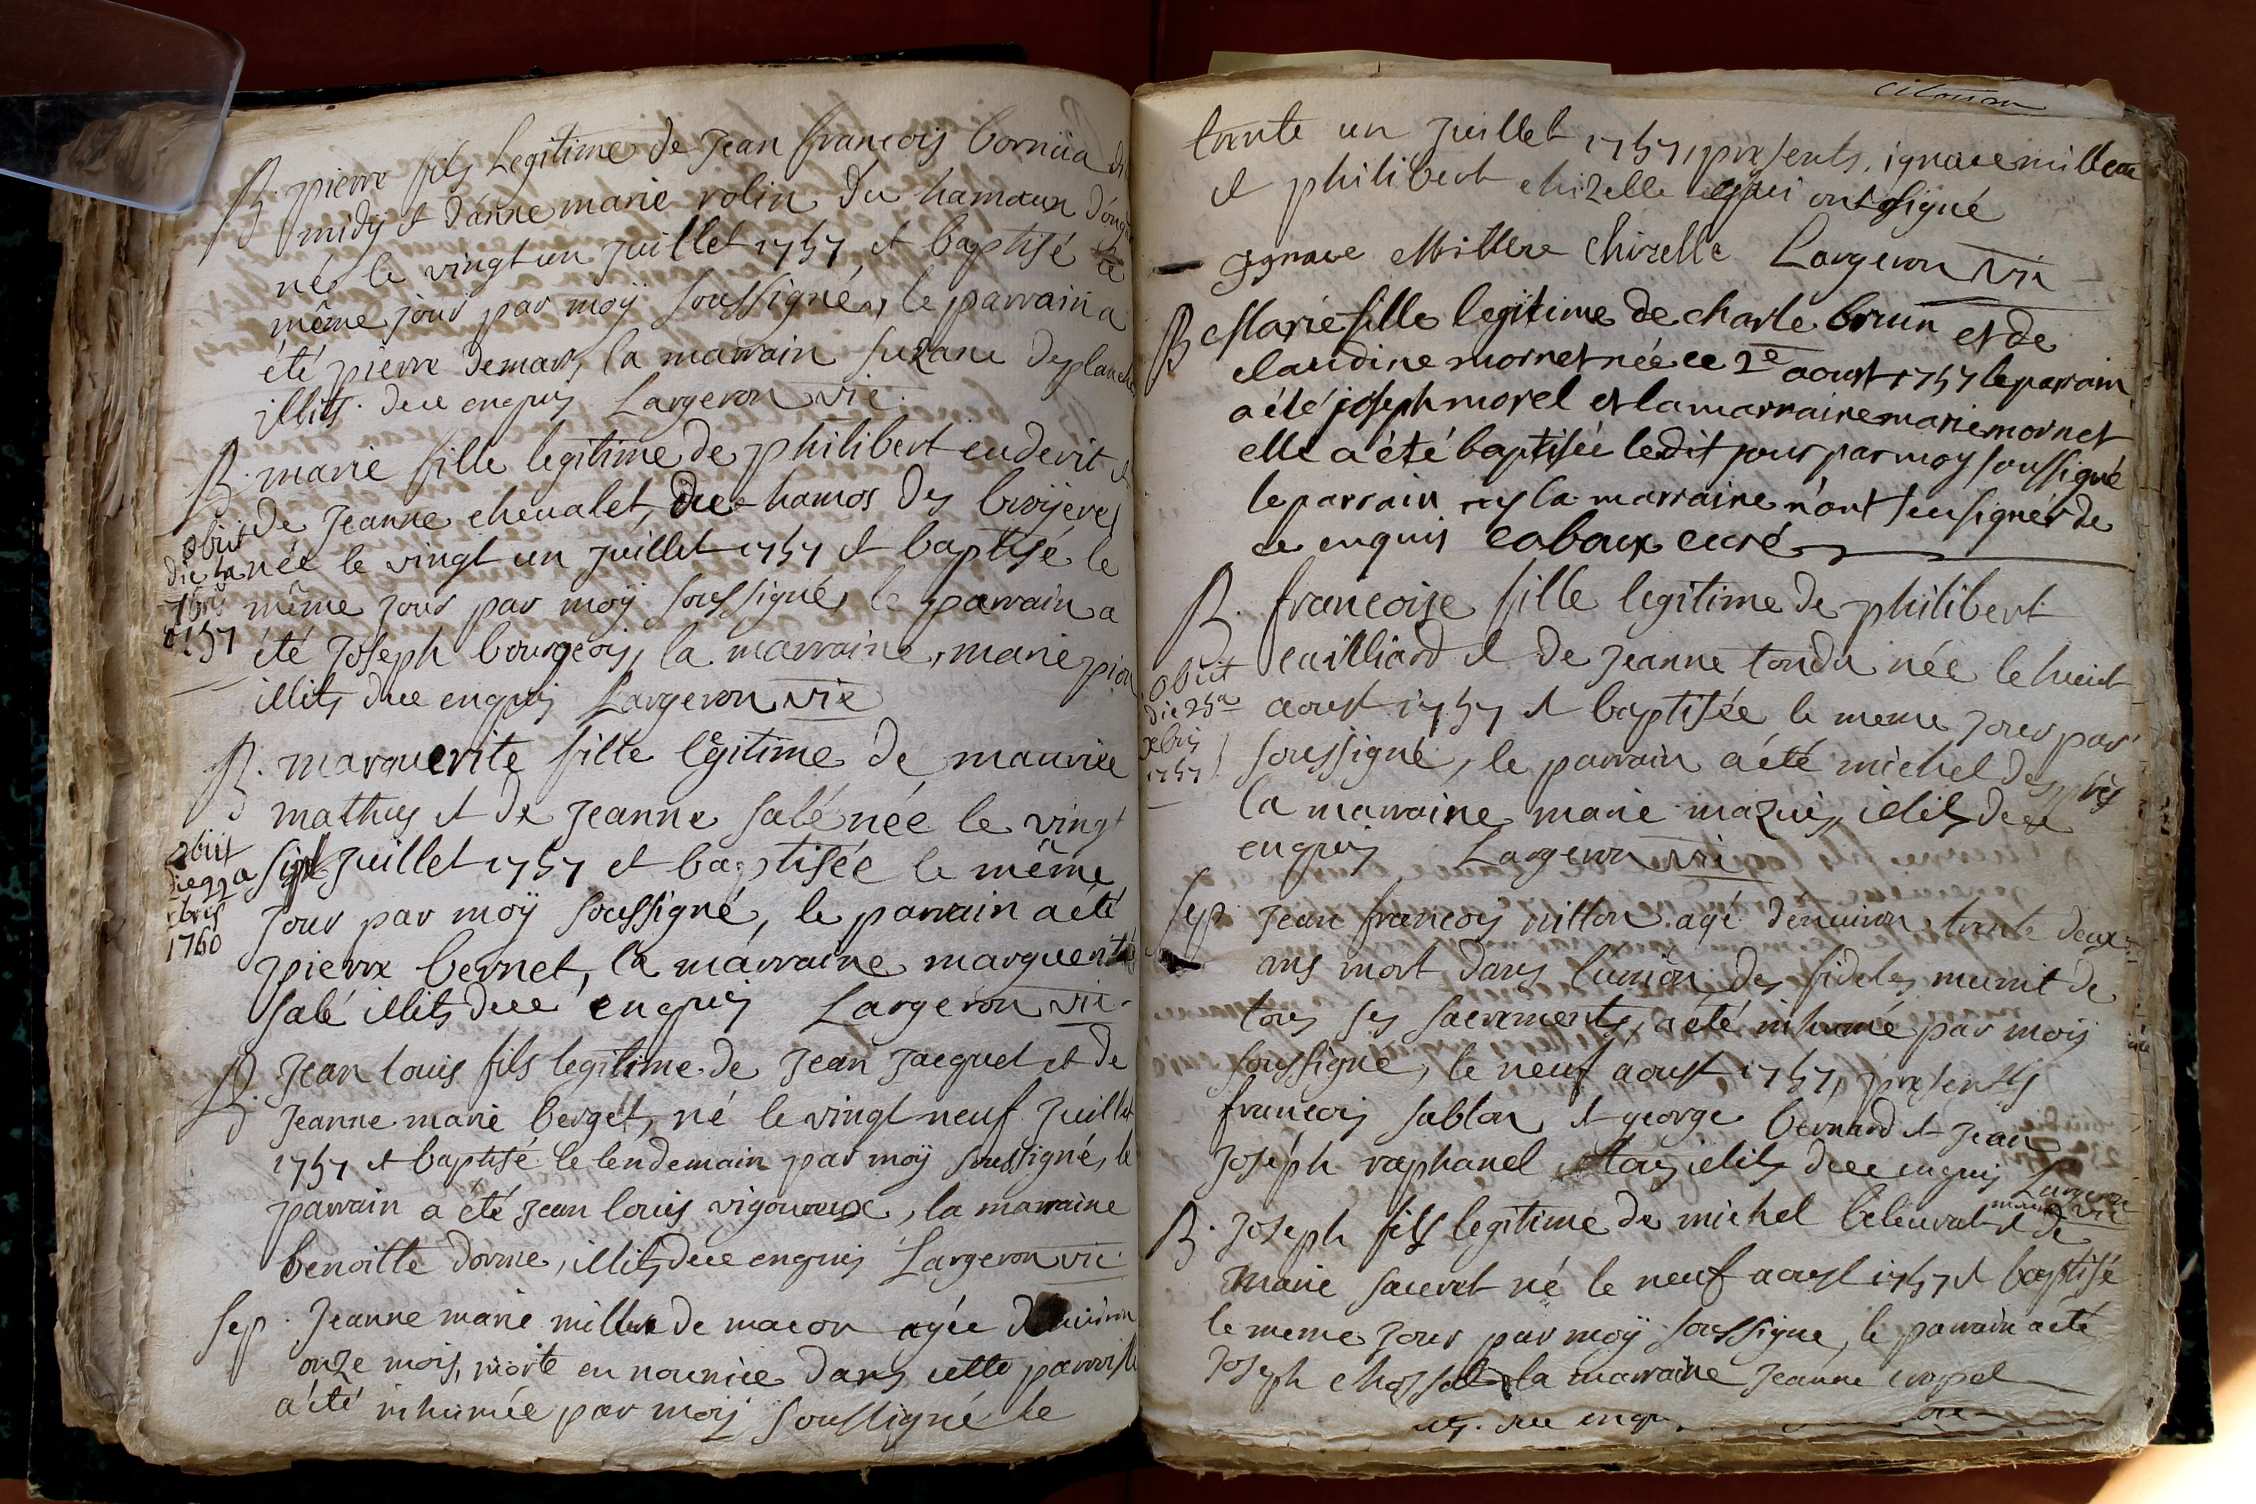 B. pierre fils Legitime de Jean françois borniia de
midy et d'anne marie rolin du hamaux
né le vingt un juillet 1757 et baptisé le
même jour par moÿ soussigné, le parrain a
été pierre demars, la marrain suzane deplanche
illits. duë enquis Largeron vic.
B. marie fille legitime de philibert cuderit et
de Jeanne chevalet, du hamos des bruÿeres
née le vingt un juillet 1757 et baptisé le
même jour par moÿ soussigné, le parrain a
été Joseph bourgeois, la marraine, marie pion
illits duë enquis Largeron vic
obiit
die
7bris
1757
B. marguerite fille legitime de maurice
mathus et de Jeanne salé née le vingt
sept juillet 1757 et baptisée le même
jour par moÿ soussigné, le parrain a été
pierre bernet, la marraine marguerite
salé illits duë enquis Largeron vic.
obiit
die 22a
bris
1760
B. Jean louis fils legitime de Jean Jacquet et de
Jeanne marie berget, né le vingt neuf juillet
1757 et baptisé le lendemain par moÿ soussigné, le
parrain a été Jean louis vigoureux, la marraine
benoitte dorme, illits duë enquis Largeron vic.
sep. Jeanne marie miller de macon agée d'environ
onze mois, morte en nourrice dans cette parroisse
a été inhumée par moy soussigné le
trente un juillet 1757, présents, ignace millere
et philibert chizelle qui ont signé
Ignace Millere Chizelle Largeron vic
B Marie fille legitime de charle brun et de
claudine mornet née ce 2e aoust 1757 le parrain
a été joseph morel et la marraine marie mornet
elle a été baptisée ledit jour par moy soussigné
le parrain ny la marraine n'ont sçu signer de
ce enquis cabaux curé
B. francoise fille legitime de philibert
cuilliard et de Jeanne tondu née le huict
aoust 1757 et baptisée le meme jour par
soussigné, le parrain a été michel desprès
la marraine marie mazuis, illits duë
enquis Largeron vic
obiit
die 25a
xbris
1757
sep. Jean francoy nitton agé denviron trente deux
ans mort dans l'union des fideles munit de
tous ses sacrements, a été inhumé par mois
soussigné, le neuf aoust 1757, presents
francois sablon et george bernard et Jean
Joseph raphanel, tous illits duë enquis Largeron
vic
B. Joseph fils legitime de michel beleurat et de
marie sauvet né le neuf aoust 1757 et baptisé
le meme jour par moÿ soussigne, le parrain a été
Joseph chossat, la marraine Jeanne crapel